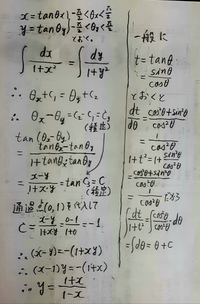 x = tanθx (-π/2 < θx < π/2)
y = tanθy (-π/2 < θy < π/2)
とおく。
∫ dx/(1+x²) = ∫ dy/(1+y²)
∴ θx + C₁ = θy + C₂
∴ θx - θy = C₂ - C₁ = C₃
(積定)
tan(θx - θy)
= (tanθx - tanθy)/(1 + tanθx tanθy)
= (x-y)/(1+xy) = tan C₃ = C
(積定)
通過点(0,1)を代入して
C = (x-y)/(1+xy) = (0-1)/(1+0) = -1
∴ (x-y) = -(1+xy)
∴ (x-1)y = -(1+x)
∴ y = (1+x)/(1-x)
一般に
t = tanθ
= sinθ/cosθ
とおくと
dt/dθ = (cos²θ+sin²θ)/cos²θ
= 1/cos²θ
1+t² = 1 + sin²θ/cos²θ
= (cos²θ+sin²θ)/cos²θ
= 1/cos²θ だから
∫ dt/(1+t²) = ∫ cos²θ/cos²θ dθ
= ∫dθ = θ + C